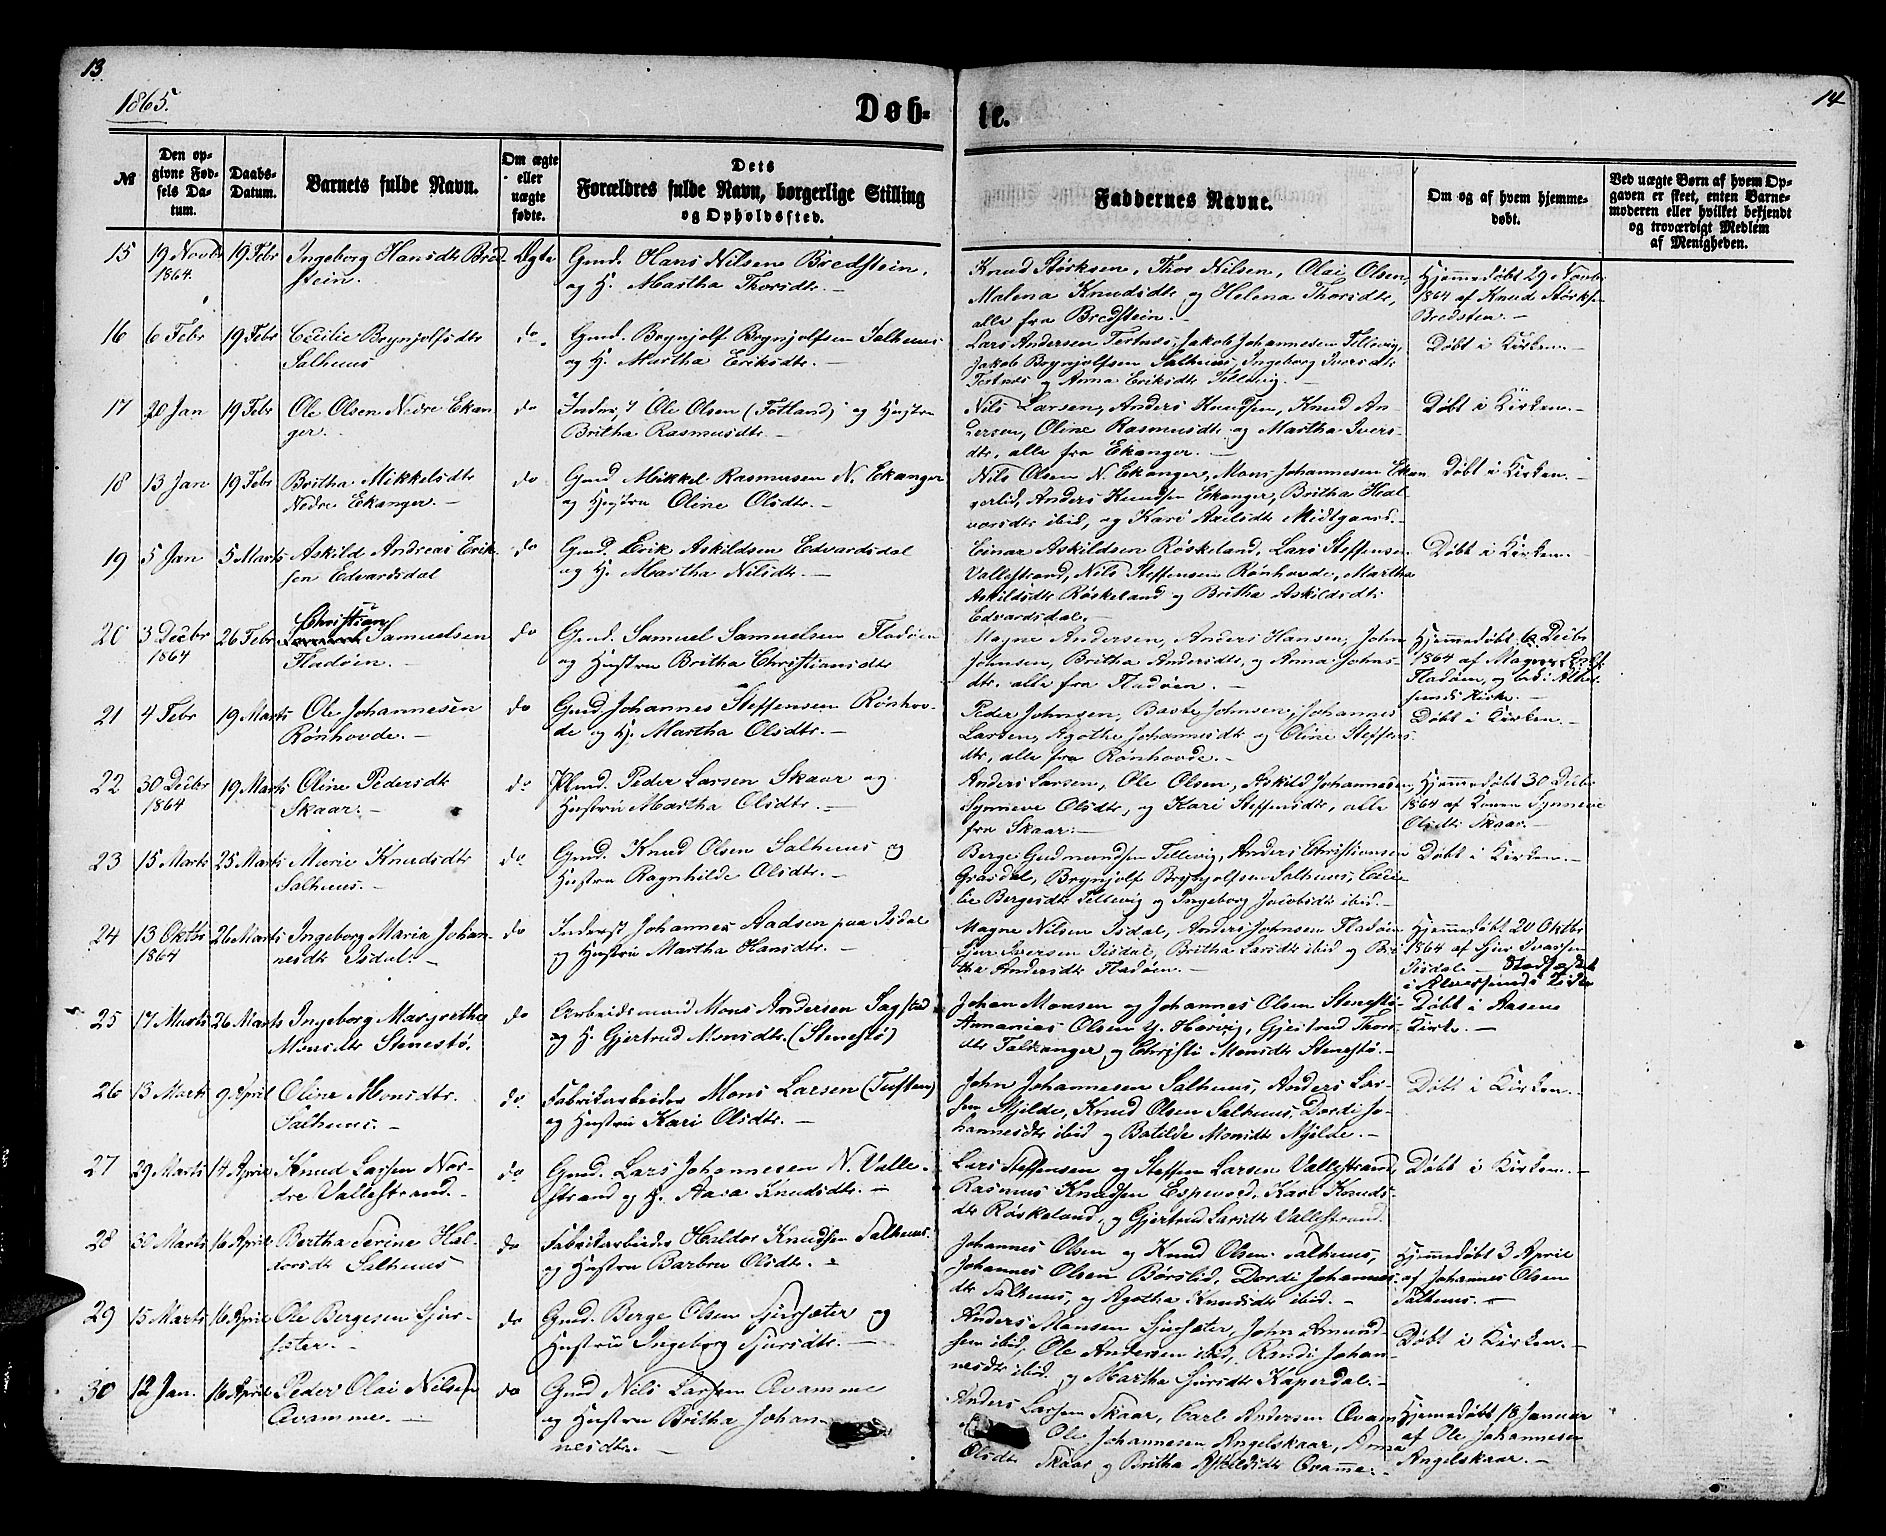 13
14
1865.
Døb-
te.
№
Den op-
givne Fød-
sels Da-
tum.
Daabs-
Datum.
Barnets fulde Navn.
Om ægte
eller
uægte
fødte.
Dets
Forældres fulde Navn, borgerlige Stilling
og Opholdssted.
Faddernes Navne.
Om og af hvem hjemme-
døbt.
Ved uægte Børn af hvem Op-
gaven er skeet, enten Barne-
moderen eller hvilket bekjendt
og troværdigt Medlem
af Menigheden.
15
19 Novbr
1864.
19 Febr
Ingeborg Hansdtr Bred-
stein.
Ægte
Gmd. Hans Nilsen Bredstein,
og H. Martha Thorsdtr. —
Knud Størksen, Thor Nilsen, Olai Olsen,
Malena Knudsdtr og Helena Thorsdtr,
alle fra Bredstein. —
Hjemmedøbt 29 Novbr
1864 af Knud Størks.
Bredsten. —
16
6 Febr
19 Febr
Cecilie Brynjolfsdtr
Salhuus
do.
Gmd. Brynjolf Brynjolfsen Salhuus
og H. Martha Eriksdtr. —
Lars Andersen Tertnæs, Jakob Johannesen Tellevig,
Jakob Brynjolfsen Salhuus, Ingeborg Iversdtr
Tertnæs og Anna Eriksdtr Tellevig. —
Døbt i Kirken. —
17
20 Jan
19 Febr
Ole Olsen Nedre Ekan
ger. —
do
Inders. Ole Olsen (Totland) og Hustru
Britha Rasmusdtr. —
Nils Larsen, Anders Knudsen, Knud An-
dersen, Oline Rasmusdtr og Martha Ivers-
dtr, alle fra Ekanger. —
Døbt i Kirken. —
18
13 Jan
19 Febr
Britha Mikkelsdtr
Nedre Ekanger. —
do
Gmd Mikkel Rasmusen N. Ekanger
og Hustru Oline Olsdtr. —
Nils Olsen N. Ekanger, Mons Johannesen Ekan
gerlid, Anders Knudsen Ekanger, Britha Hal-
vorsdtr ibid, og Kari Axelsdtr Midtgaard. —
Døbt i Kirken. —
19
5 Jan
5 Marts
Askild Andreas Erik-
sen Edvardsdal
do
Gmd. Erik Askildsen Edvardsdal
og H. Martha Nilsdtr. —
Einar Askildsen Røskeland, Lars Steffensen
Vallestrand, Nils Steffensen Rønhovde, Martha
Askildsdtr Røskeland og Britha Askildsdtr
Edvardsdal. —
Døbt i Kirken. —
20
3 Decbr
1864
26 Febr
Christian
Samuelsen
Fladøen. —
do
Gmd. Samuel Samuelsen Fladøen
og Hustru Britha Christiansdtr
Magne Andersen, Anders Hansen, John
Johnsen, Britha Andersdtr, og Anna Johns-
dtr, alle fra Fladøen. —
Hjemmedøbt 6 Decbr
1864 af Magne
Fladøen, og bed. i Alver-
sunds Kirke. —
21
4 Febr
19 Marts
Ole Johannesen
Rønhovde. —
do
Gmd Johannes Steffensen Rønhov-
de og H. Martha Olsdtr. —
Peder Johnsen, Baste Johnsen, Johannes
Larsen, Agothe Johannesdtr og Oline Steffens
dtr, alle fra Rønhovde. —
Døbt i Kirken. —
22
30 Decbr
1864
19 Marts
Oline Pedersdtr
Skaar. —
do
Plmd. Peder Larsen Skaar og
Hustru Martha Olsdtr. —
Anders Larsen, Ole Olsen, Askild Johannesen,
Synneve Olsdtr, og Kari Steffensdtr, alle
fra Skaar. —
Hjemmedøbt 30 Decbr
1864 af Konen Synneve
Olsdtr Skaar. —
23
15 Marts
25 Marts
Marie Knudsdtr
Salhuus. —
do
Gmd. Knud Olsen Salhuus og
Hustru Ragnhilde Olsdtr. —
Berge Gudmundsen Tellevig, Anders Christiansen
Grasdal, Brynjolf Brynjolfsen Salhuus, Ceci-
lie Bergesdtr Tellevig og Ingeborg Jacobsdtr ibid. —
Døbt i Kirken. —
24
13 Oktbr
1864
26 Marts
Ingeborg Maria Johan-
nesdtr Isdal. —
do
Inderst Johannes Aadsen paa Isdal
og Hustru Martha Hansdtr. —
Magne Nilsen Isdal, Anders Johnsen Fladøen
Sjur Iversen Isdal, Britha Larsdtr ibid og Bri
tha Andersdtr Fladøen. —
Hjemmedøbt 20 Oktbr
1864 af Sjur Ivarsen
Isdal. — Stadfæstet
i Alversund Kirke
25
17 Marts
26 Marts
Ingeborg Margretha
Monsdtr Stenestø.
do
Arbeidsmand Mons Andersen Sagstad
og H. Gjertrud Monsdtr. (Stenestø)
Johan Monsen og Johannes Olsen Stenestø
Annanias Olsen y. Hervig, Gjertrud Thors
dtr Falkanger, og Christi Monsdtr Stenestø. —
Døbt i Aasene
Kirke. —
26
13 Marts
9 April
Oline Monsdtr.
Salhuus. —
do
Fabrikarbeider Mons Larsen (Tuften)
og Hustru Kari Olsdtr. —
John Johannesen Salhuus, Anders Lar-
sen Mjelde, Knud Olsen Salhuus, Dordi Jo-
hannesdtr ibid og Batilde Monsdtr Mjelde. —
Døbt i Kirken. —
27
29 Marts
14 April
Knud Larsen Nor-
dre Vallestrand. —
do
Gmd. Lars Johannesen N. Valle-
strand og H. Aasa Knudsdtr. —
Lars Steffensen og Steffen Larsen Vallestrand,
Rasmus Knudsen Espevold, Kari Knuds
dtr Røskeland, og Gjertrud Larsdtr Vallestrand
Døbt i Kirken. —
28
30 Marts
16 April
Bertha Serine Hal-
dorsdtr Salhuus
do
Fabrikarbeider Haldor Knudsen Salhuus.
og Hustru Barbro Olsdtr. —
Johannes Olsen og Knud Olsen Salhuus,
Johannes Olsen Børslid, Dordi Johannes-
dtr Salhuus, og Agotha Knudsdtr ibid. —
Hjemmedøbt 3 April
af Johannes Olsen
Salhuus. —
29
15 Marts
16 April
Ole Bergesen Sjur-
sæter. —
do
Gmd. Berge Olsen Sjursæter og
Hustru Ingeborg Sjursdtr. —
Anders Monsen Sjursæter, John Amund-
sen ibid, Ole Andersen ibid, Randi Johan-
nesdtr ibid og Martha Sjursdtr Kaperdal. —
Døbt i Kirken. —
30
12 Jan.
16 April
Peder Olai Nilsen
Qvamme. —
do
Gmd Nils Larsen Qvamme
og Hustru Britha Johan-
nesdtr. —
Anders Larsen Skaar, Carl Andersen Qvam
Ole Johannesen Angelskaar, Anna
Olsdtr Skaar og Britha Askildsdtr Qvamme. —
Hjemmedøbt 18 Januar
af Ole Johannesen
Angelskaar. —